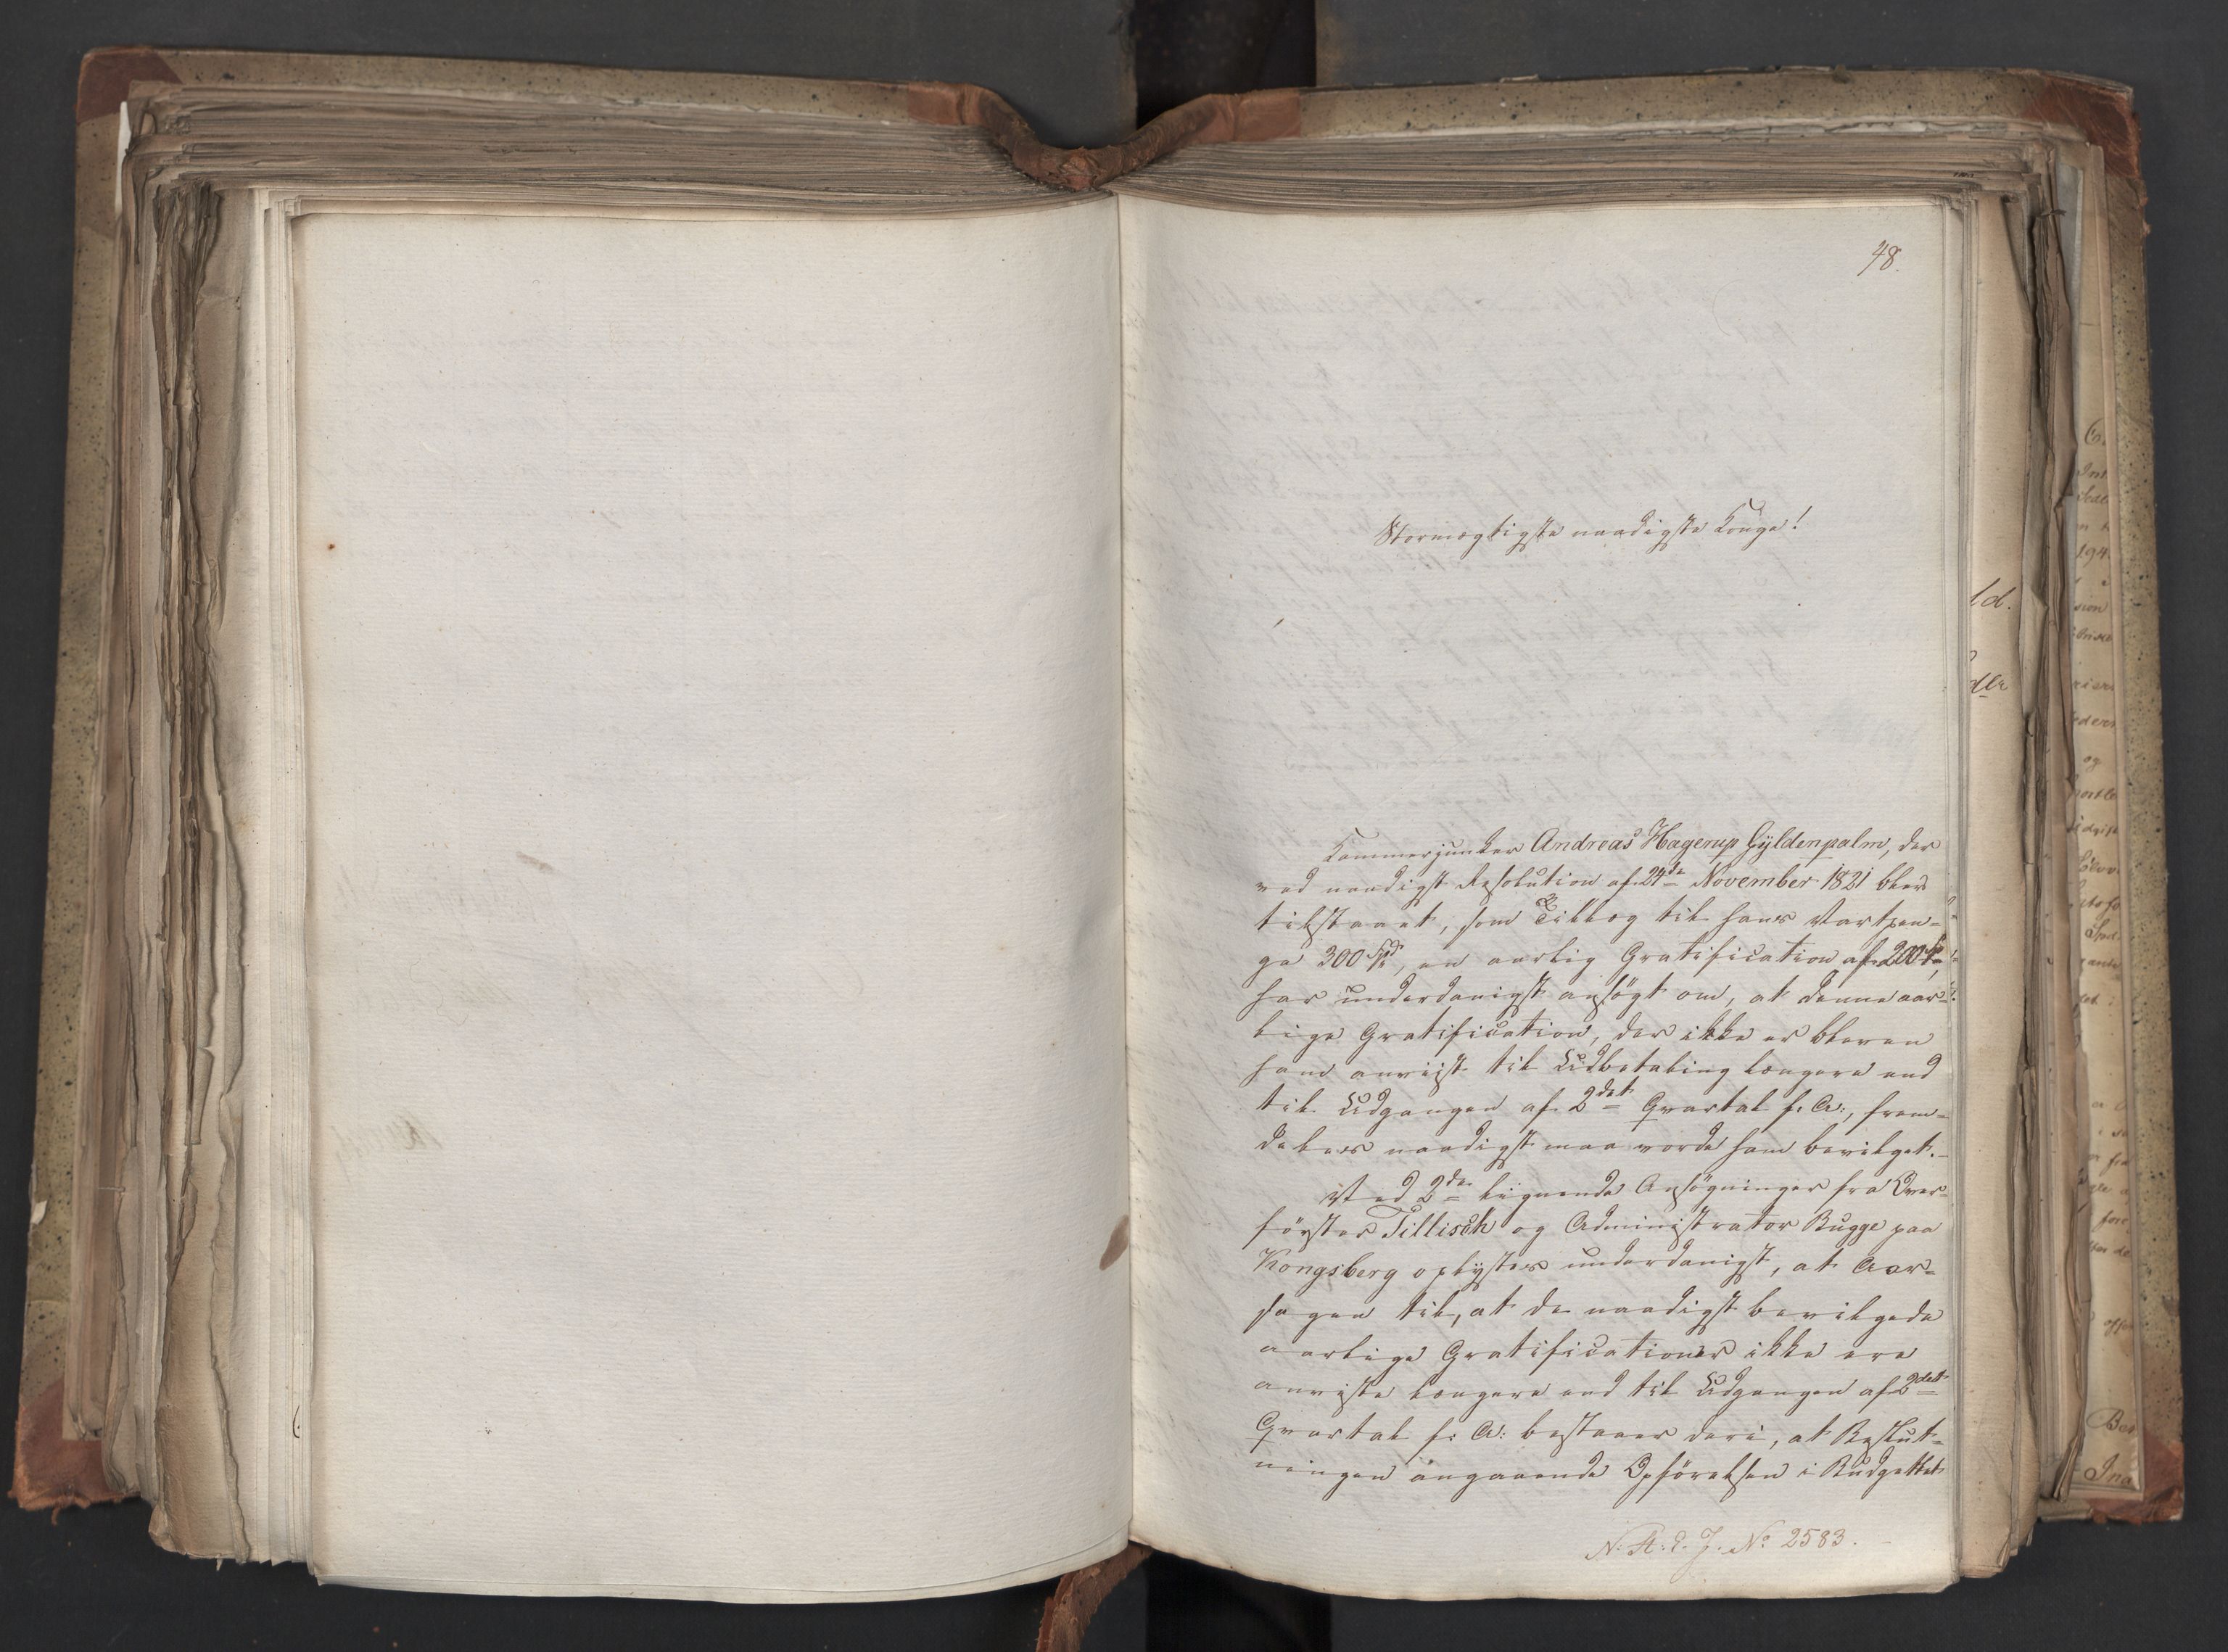 48.
Stormægtigste naadigste Konge!
Kammerjunker Andreas Hagerup Gyldenpalm, der
ved naadigst Resolution af 24de November 1821 blev
tilstaaet, som Tillæg til hans Vartpen=
ge 300 Spd, en aarlig Gratification af 200 Spd,
har underdanigst ansögt om, at denne aar=
lige Gratification, der ikke er bleven
ham anviist til Udbetaling længere end
til Udgangen af 2det Qvartal f: A:, frem=
deles naadigst maa vorde ham bevilget.
Ved 2de lignende Ansögninger fra Over=
förster Tillisch og Administrator Bugge paa
Kongsberg oplyses underdanigst, at Aar=
sagen til, at de naadigst bevilgede
aarlige Gratificationer ikke ere
anviste længere end til Udgangen af 2det
Qvartal f: A: bestaaer deri, at Beslut=
ningen angaaende Opförelsen i Budgettet
N. R. d. J. No 2583.